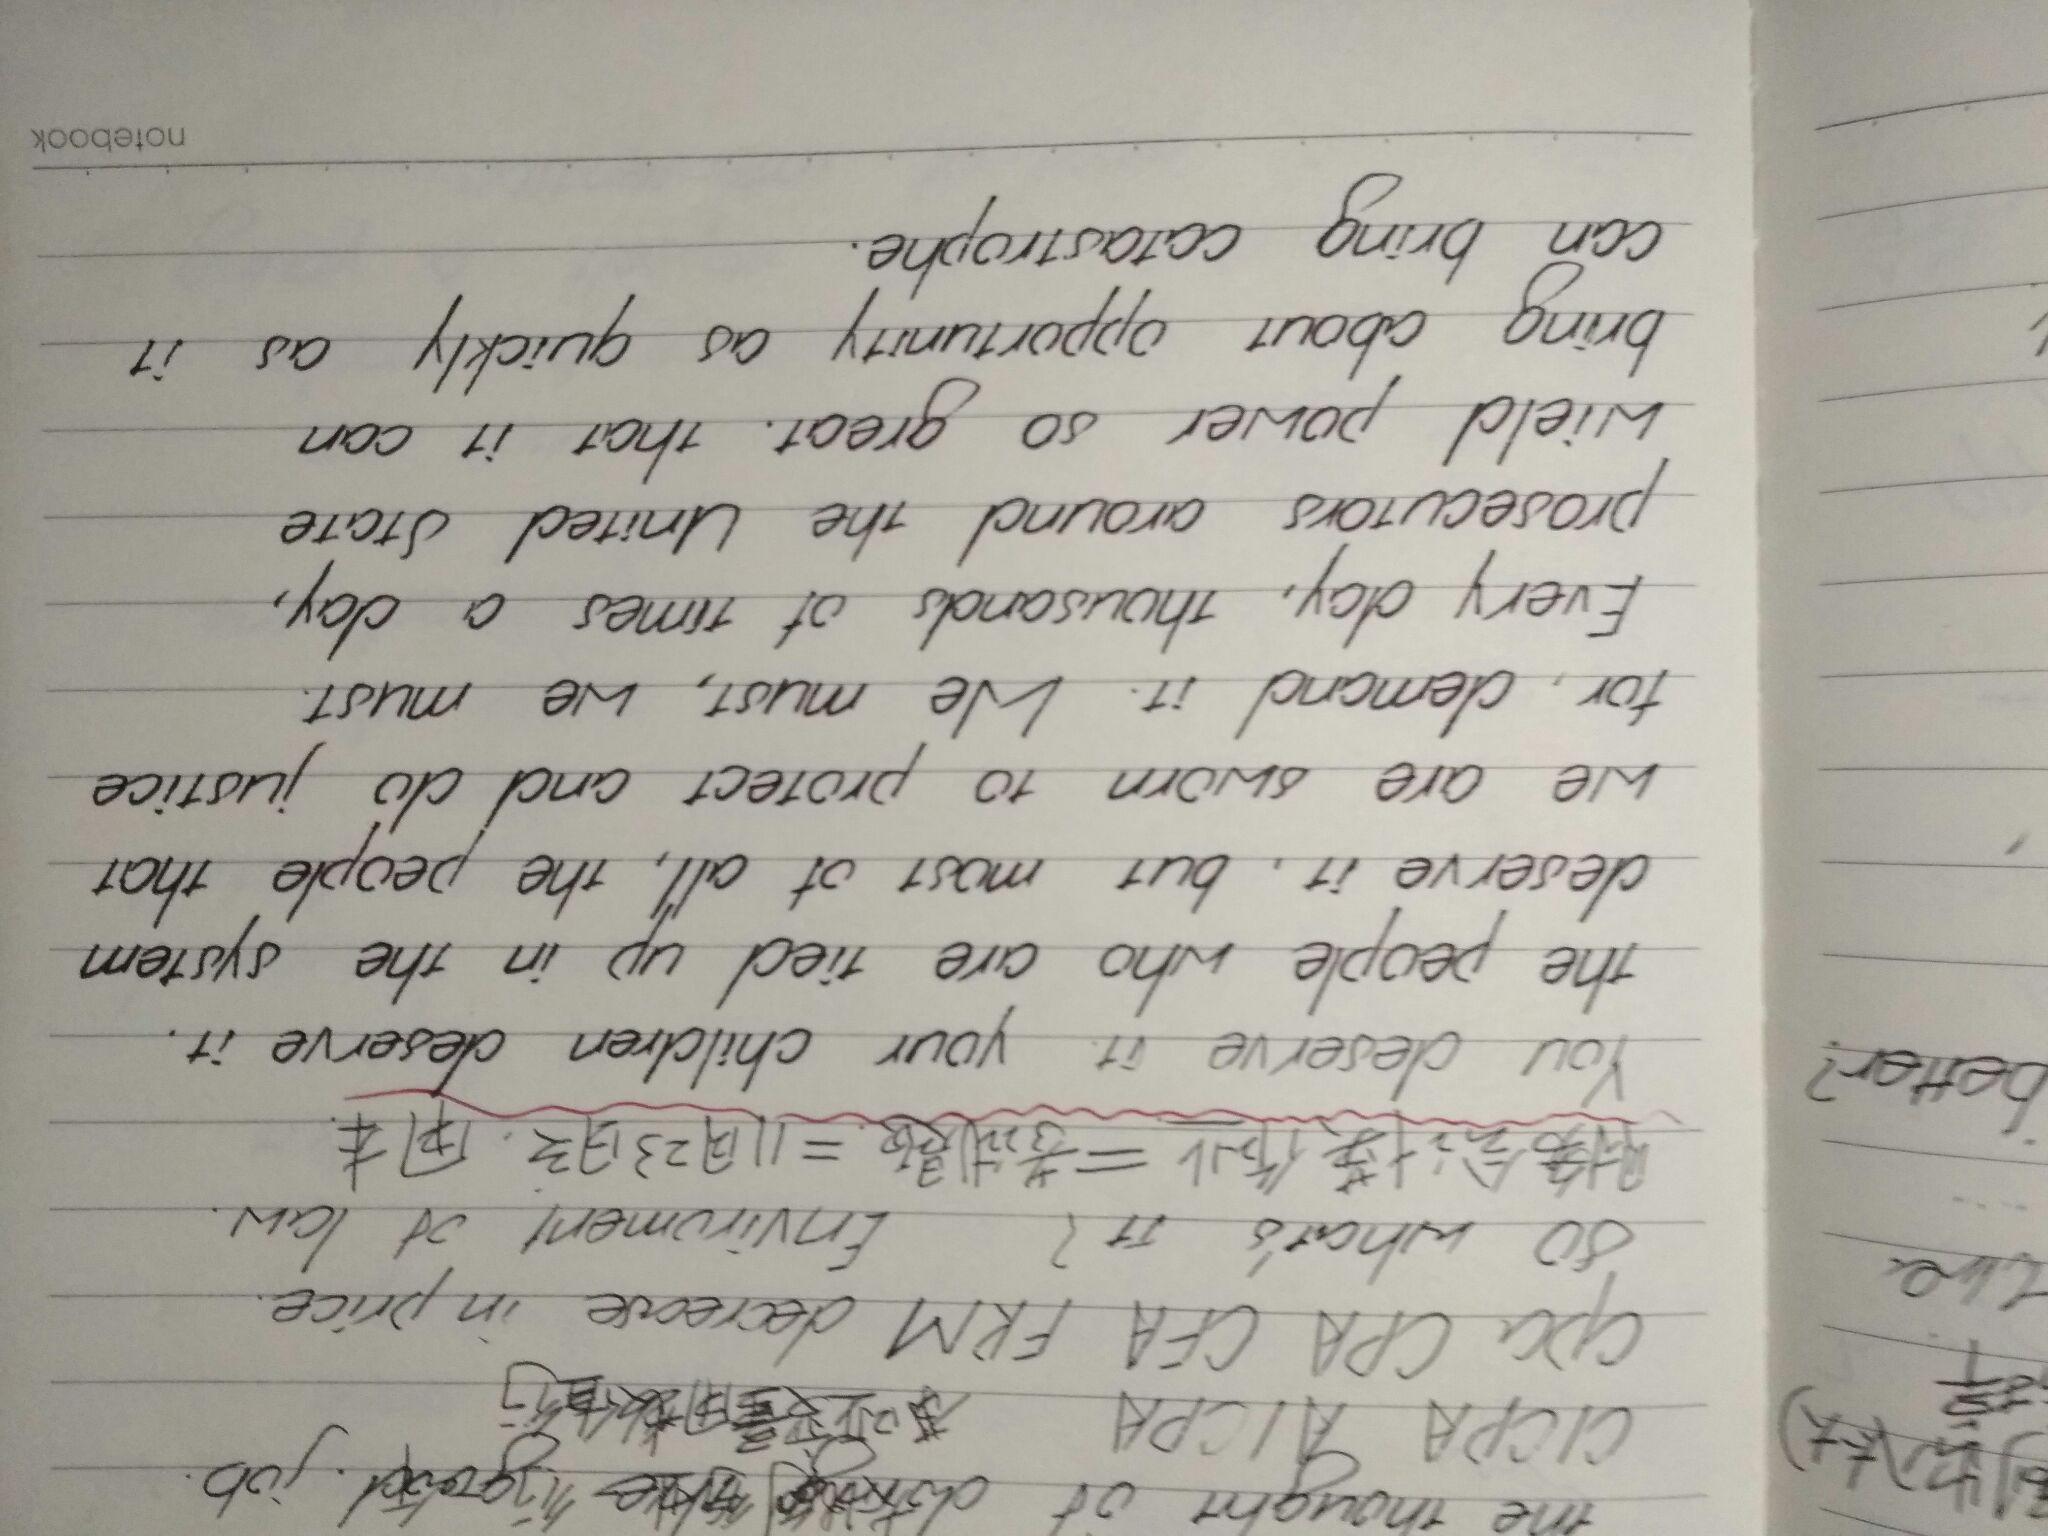 the thought of good job.
CICPA AICPA
cpa CPA CFA FRM decrease in price.
so what's it? Enviroment of law.
财务会计 = 考试 = 11月23日
You deserve it. your children deserve it.
the people who are tied up in the system
deserve it, but most of all, the people that
we are sworn to protect and do justice
for, demand it. We must, we must.
Every day, thousands of times a day,
prosecutors around the United State
wield power so great. that it can
bring about opportunity as quickly as it
can bring catastrophe.
notebook
the
better?